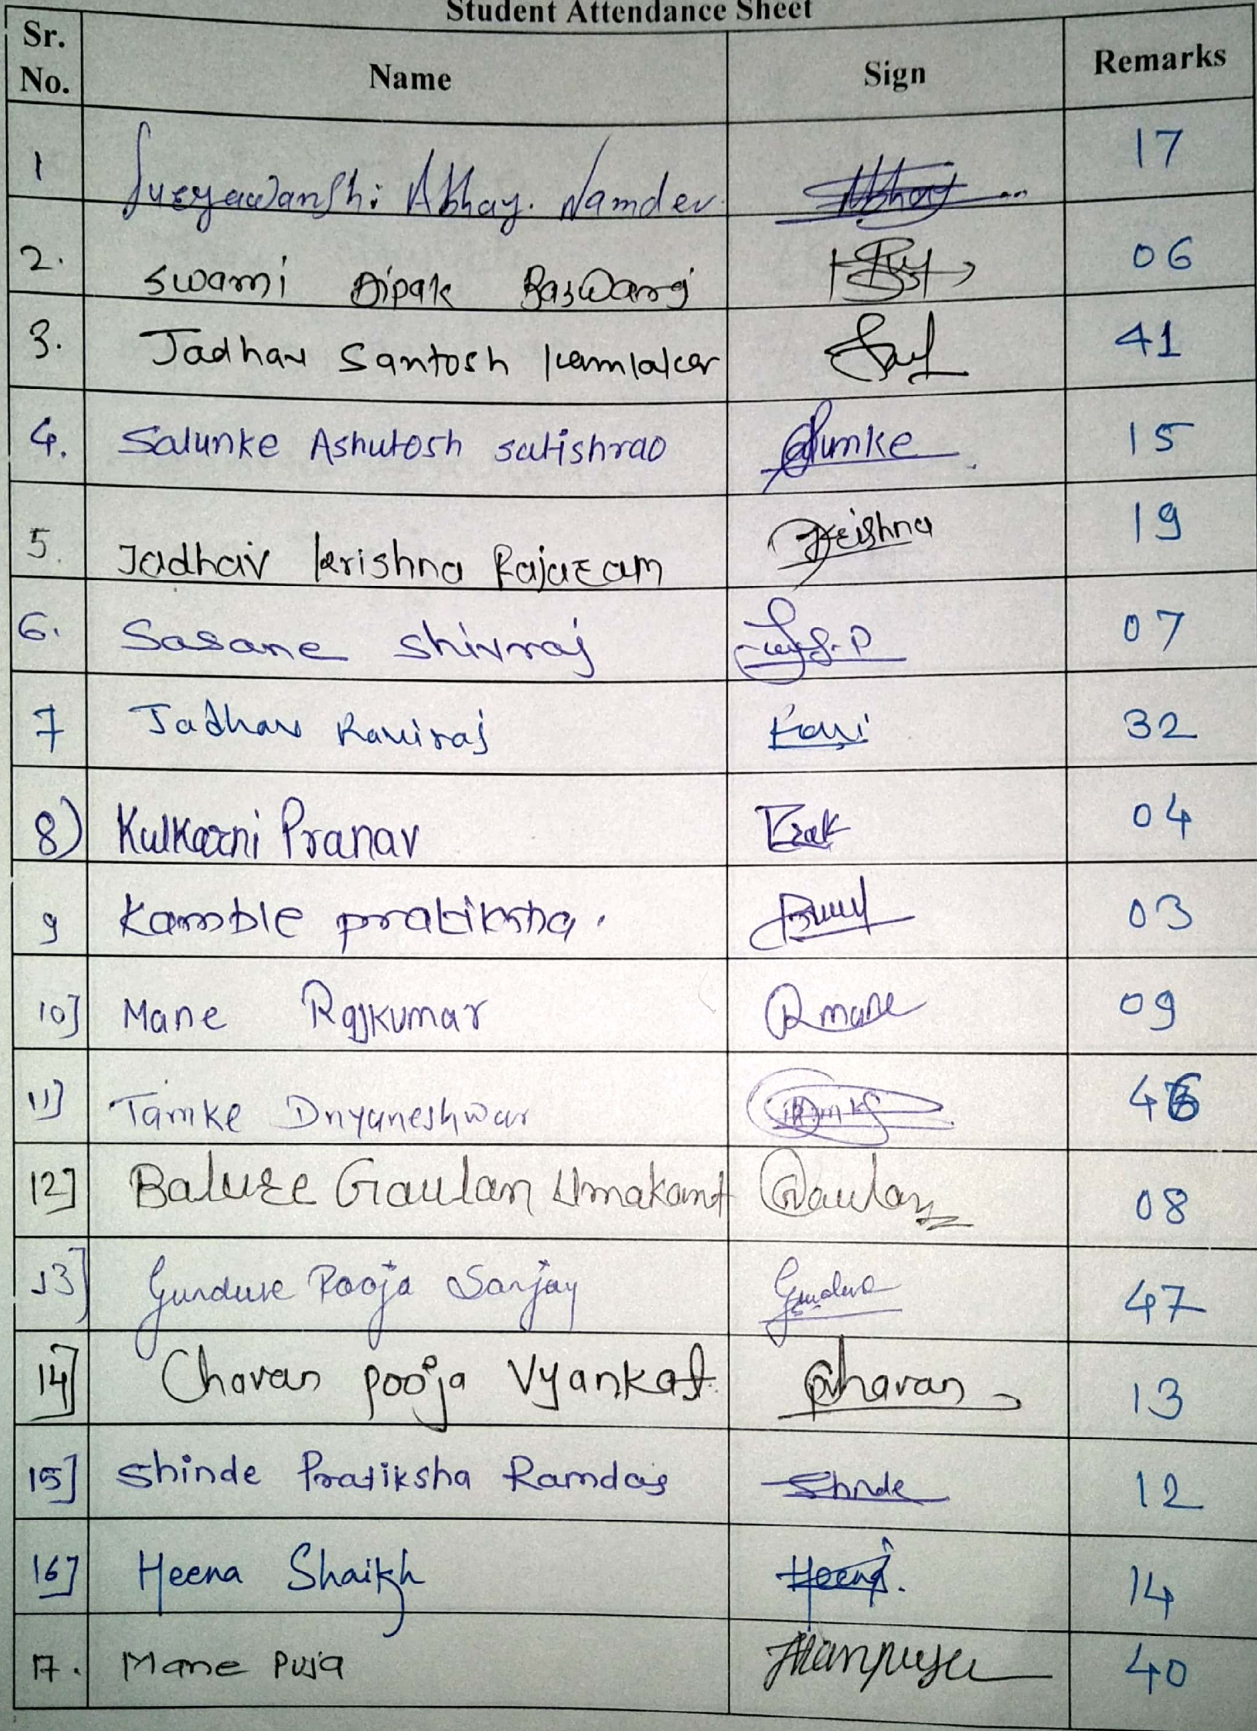 Student Attendance Sheet
Sr. No. Name Sign Remarks
1 Suryawanshi Abhay. Namdev Abhay 17
2. Swami Dipak 06
3. Jadhav Santosh kamlakar 41
4. Salunke Ashutosh satishrao 15
5. Jadhav krishna Rajaram krishna 19
6. Sasane shivraj 07
7 Jadhav Raviraj Ravi 32
8) Kulkarni Pranav 04
9 Kamble pratiksha. 03
10] Mane Rajkumar R mane 09
11] Tamke Dnyaneshwar
12] Balure Gaulan Umakant Gaulan 08
13] Gundure Pooja Sanjay Gundure 47
14] Chavan pooja Vyankat Chavan 13
15] Shinde Pratiksha Ramdas Shinde 12
16] Heena Shaikh Heena. 14
17. Mane Puja 40